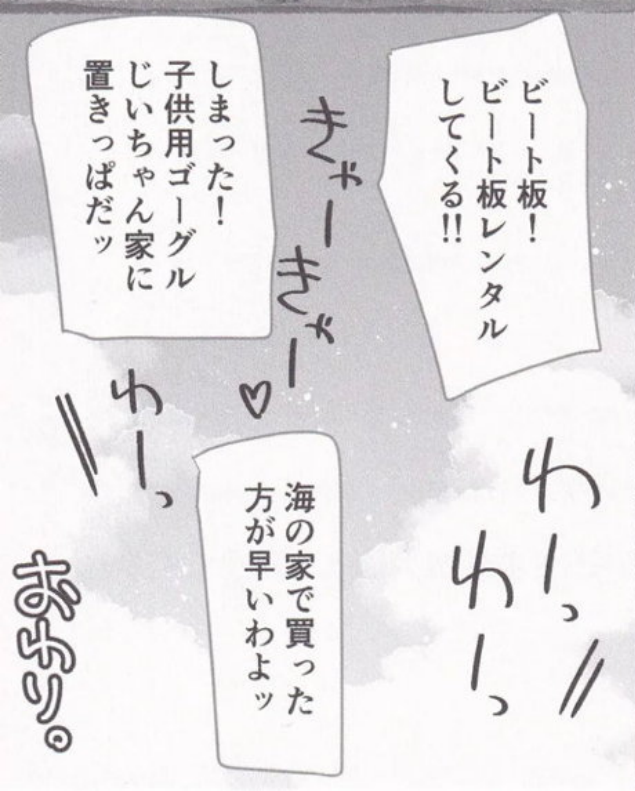 ビート板！
ビート板レンタル
してくる!!
きゃー
きゃー♡
しまった！
子供用ゴーグル
じいちゃん家に
置きっぱだッ
わーっ
わーっ
海の家で買った
方が早いわよッ
わーっ
おわり。